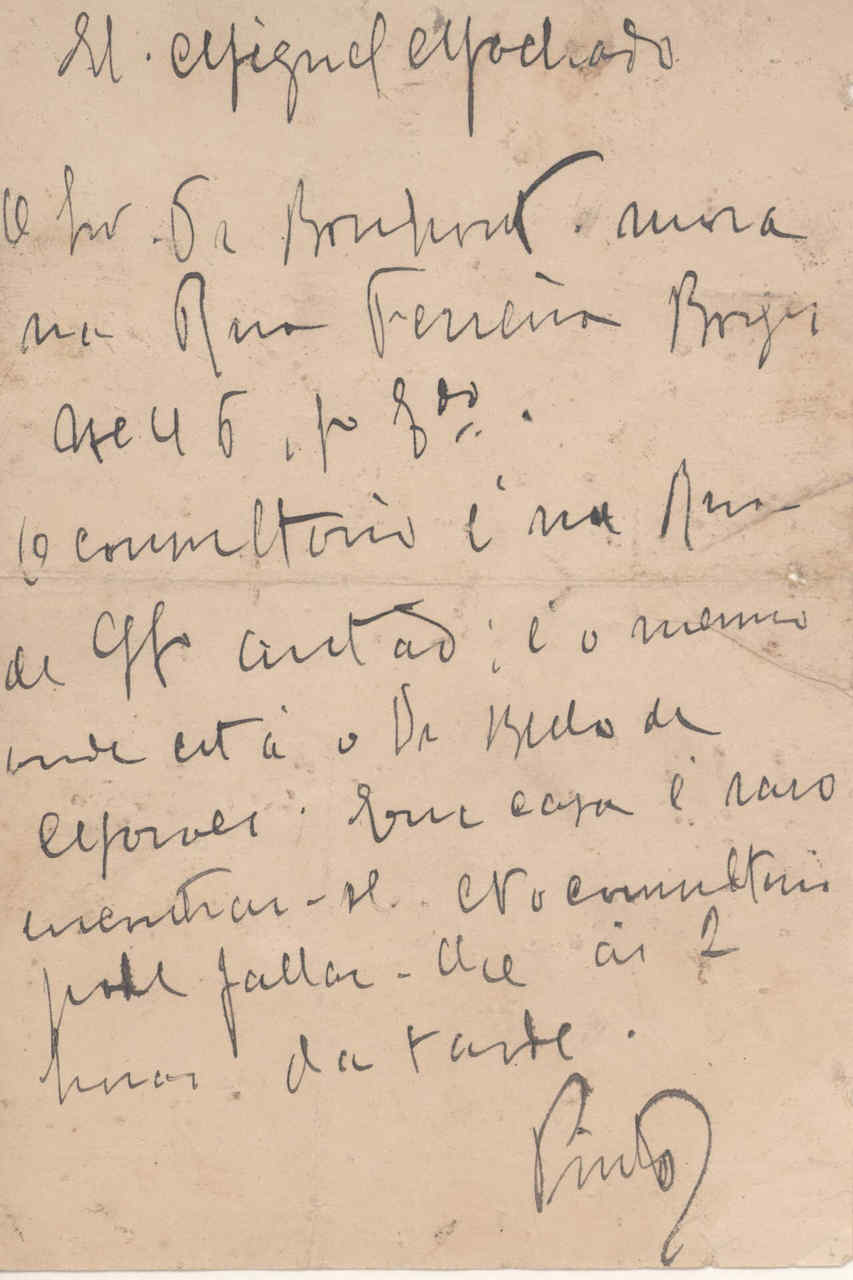 Miguel Machado
O Snr. Dr Bonhorst. mora
na Rua Ferreira Borges
46,
O consultorio é na Rua
de Sto Antão; é o mesmo
onde está o Dr Bello de
Moraes. Em casa é raro
encontrar-se. No consultorio
pode fallar-lhe ás 2
horas da tarde.
Pinto